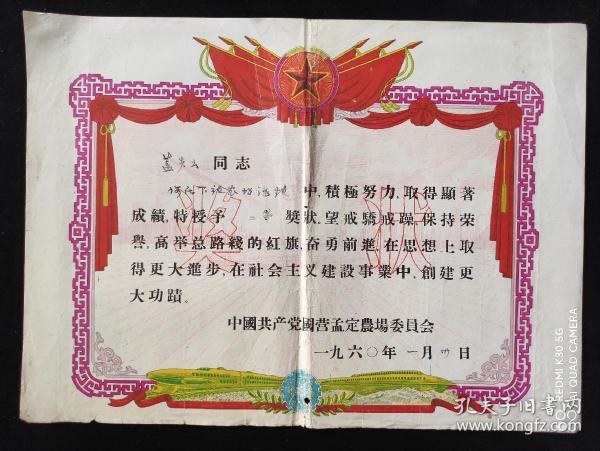 同志
中,積極努力,取得顯著
成績,特授予 二等 獎狀,望戒驕戒躁,保持荣
譽,高举总路綫的紅旗,奋勇前進,在思想上取
得更大進步,在社会主义建設事業中,創建更
大功蹟。
奬 状
中國共产党國营孟定農場委員会
一九六〇年 一月 卅 日
REDMI K30 5G
AI QUAD CAMERA
孔夫子旧书网